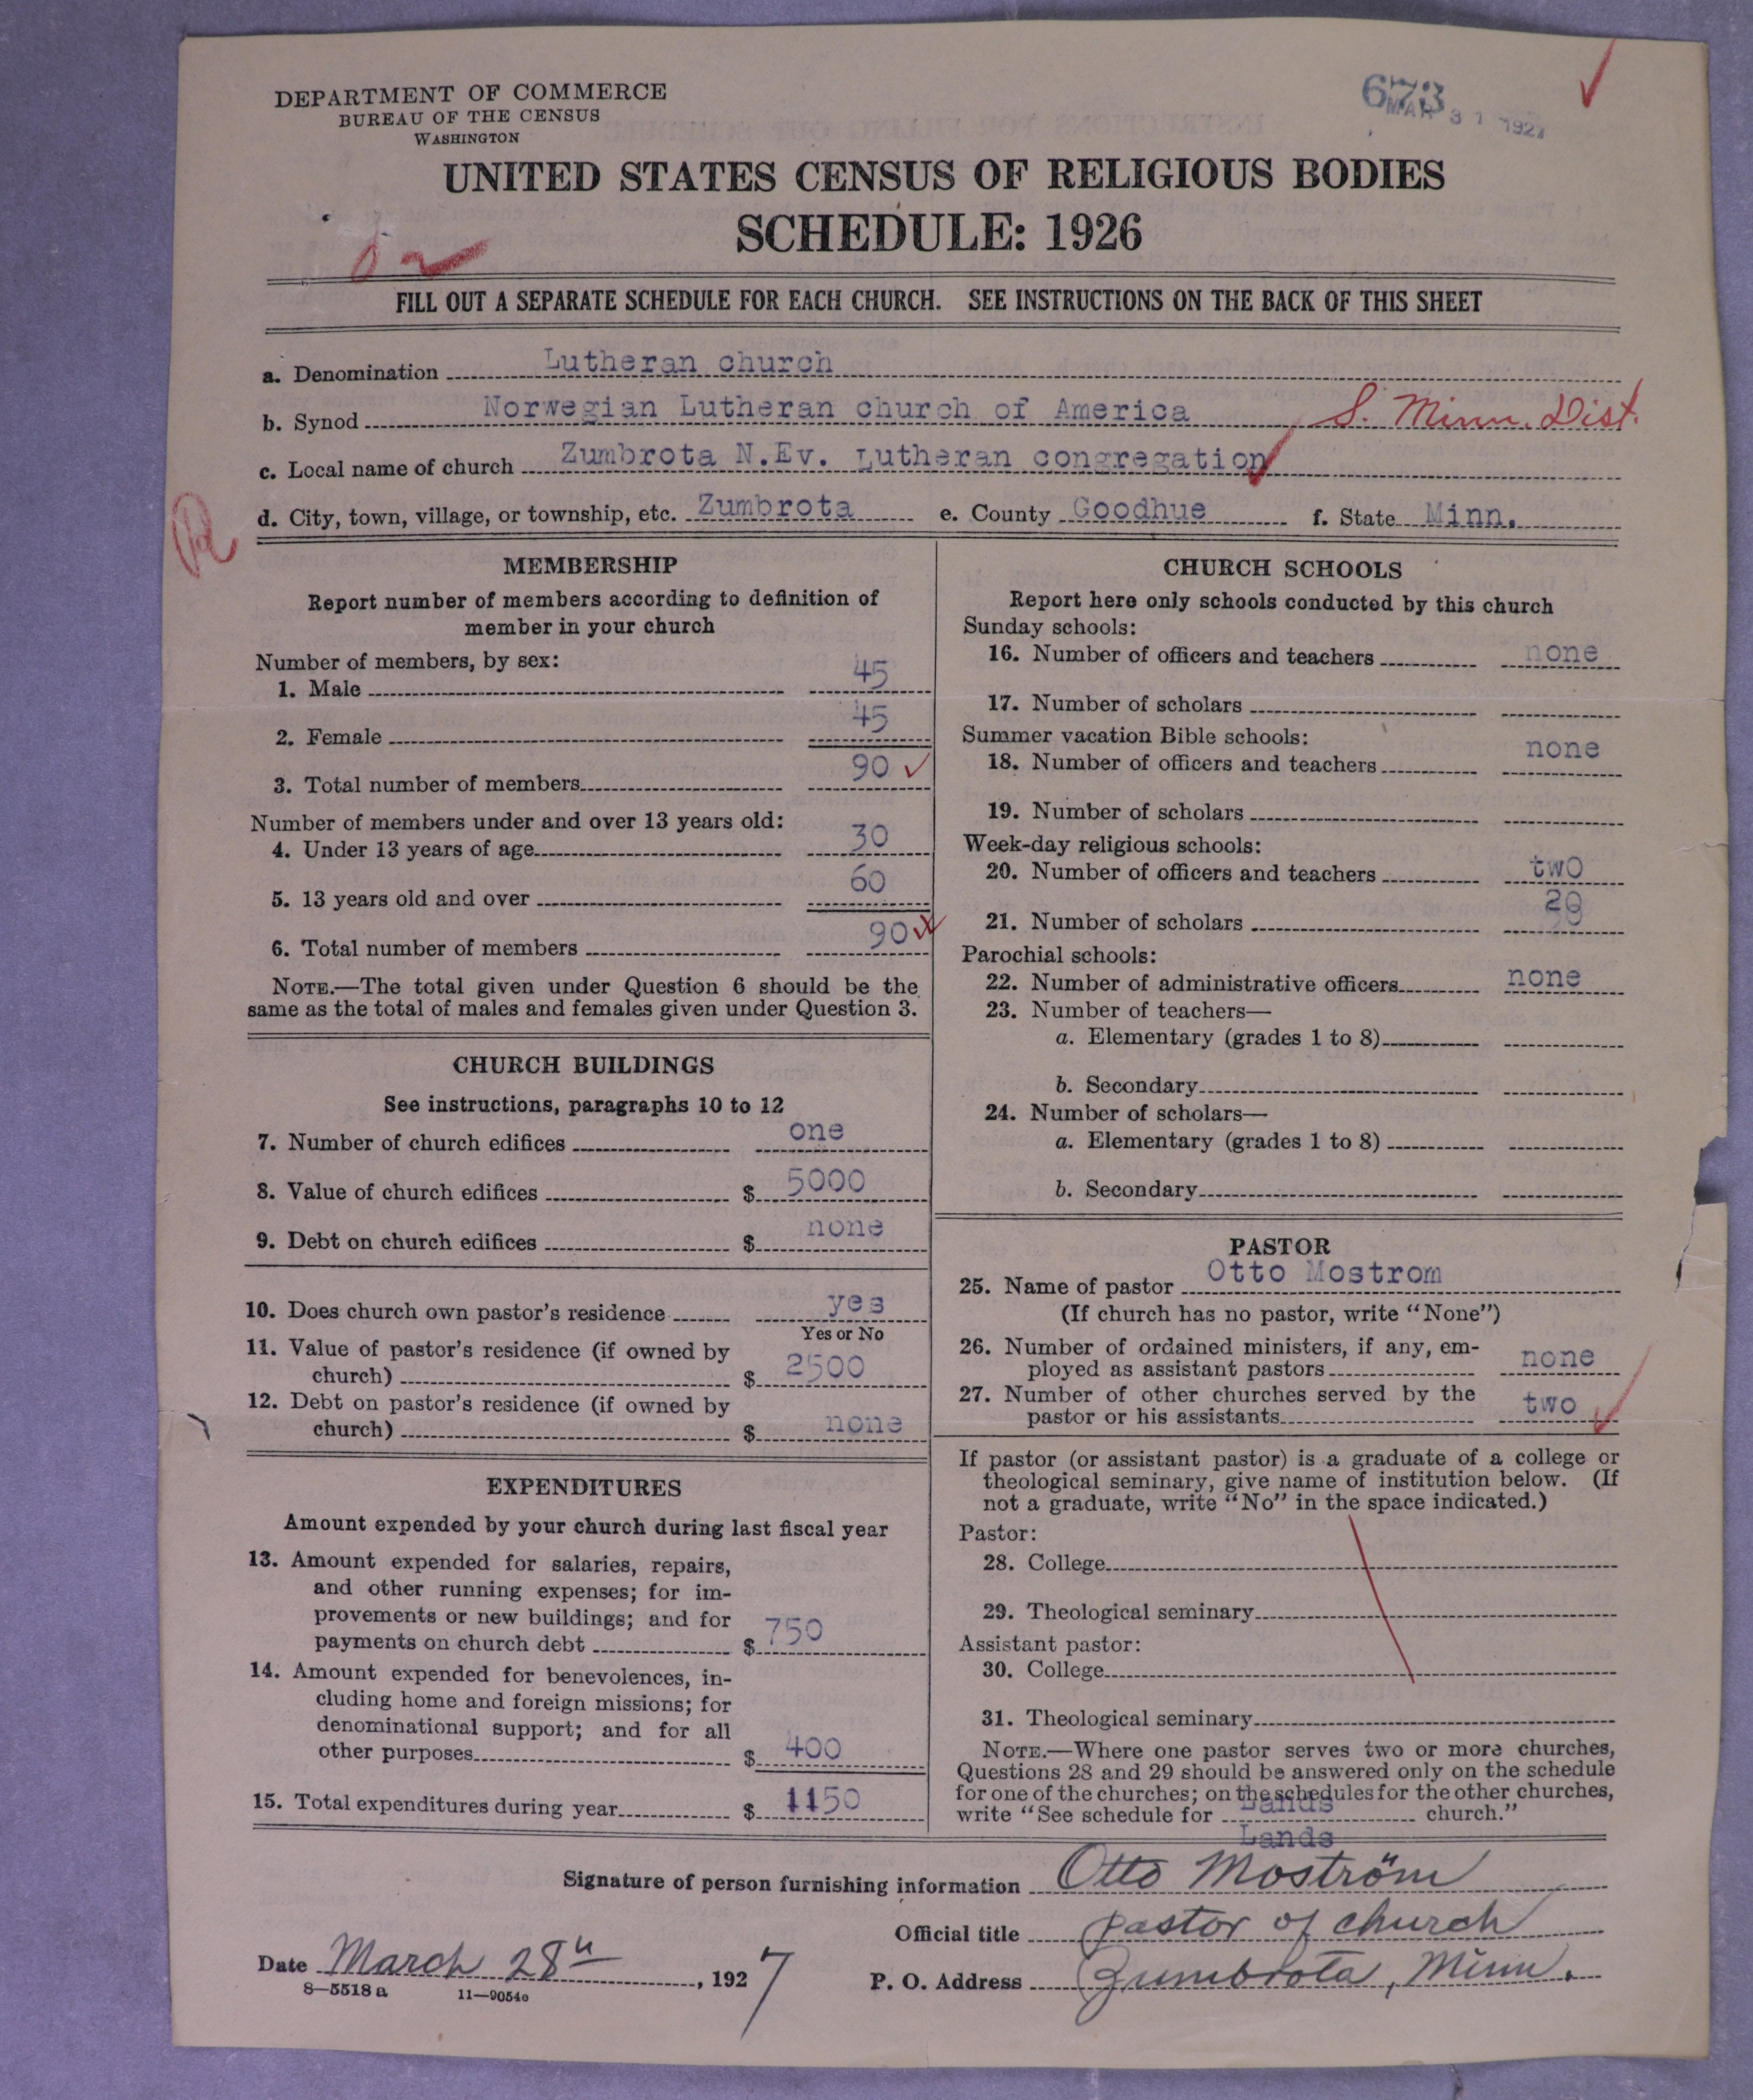 DEPARTMENT OF COMMERCE
BUREAU OF THE CENSUS
WASHINGTON
673
MAR 31 1927
UNITED STATES CENSUS OF RELIGIOUS BODIES
SCHEDULE: 1926
FILL OUT A SEPARATE SCHEDULE FOR EACH CHURCH. SEE INSTRUCTIONS ON THE BACK OF THIS SHEET
a. Denomination Lutheran church
b. Synod Norwegian Lutheran church of America S. Minn. Dist.
c. Local name of church Zumbrota N.Ev. Lutheran congregation
d. City, town, village, or township, etc. Zumbrota e. County Goodhue f. State Minn.
MEMBERSHIP
Report number of members according to definition of
member in your church
Number of members, by sex:
1. Male 45
2. Female 45
3. Total number of members 90
Number of members under and over 13 years old:
4. Under 13 years of age 30
5. 13 years old and over 60
6. Total number of members 90
NOTE.—The total given under Question 6 should be the
same as the total of males and females given under Question 3.
CHURCH BUILDINGS
See instructions, paragraphs 10 to 12
7. Number of church edifices one
8. Value of church edifices $ 5000
9. Debt on church edifices $ none
10. Does church own pastor's residence yes
Yes or No
11. Value of pastor's residence (if owned by
church) $ 2500
12. Debt on pastor's residence (if owned by
church) $ none
EXPENDITURES
Amount expended by your church during last fiscal year
13. Amount expended for salaries, repairs,
and other running expenses; for im-
provements or new buildings; and for
payments on church debt $ 750
14. Amount expended for benevolences, in-
cluding home and foreign missions; for
denominational support; and for all
other purposes $ 400
15. Total expenditures during year $ 1150
CHURCH SCHOOLS
Report here only schools conducted by this church
Sunday schools:
16. Number of officers and teachers none
17. Number of scholars
Summer vacation Bible schools:
18. Number of officers and teachers none
19. Number of scholars
Week-day religious schools:
20. Number of officers and teachers two
21. Number of scholars 20
Parochial schools:
22. Number of administrative officers none
23. Number of teachers—
a. Elementary (grades 1 to 8)
b. Secondary
24. Number of scholars—
a. Elementary (grades 1 to 8)
b. Secondary
PASTOR
25. Name of pastor Otto Mostrom
(If church has no pastor, write "None")
26. Number of ordained ministers, if any, em-
ployed as assistant pastors none
27. Number of other churches served by the
pastor or his assistants two
If pastor (or assistant pastor) is a graduate of a college or
theological seminary, give name of institution below. (If
not a graduate, write "No" in the space indicated.)
Pastor:
28. College
29. Theological seminary
Assistant pastor:
30. College
31. Theological seminary
NOTE.—Where one pastor serves two or more churches,
Questions 28 and 29 should be answered only on the schedule
for one of the churches; on the schedules for the other churches,
write "See schedule for Lands church."
Lands
Signature of person furnishing information Otto Moström
Official title Pastor of church
Date March 28th, 1927 P. O. Address Zumbrota, Minn.
8—5518 a 11—9054c